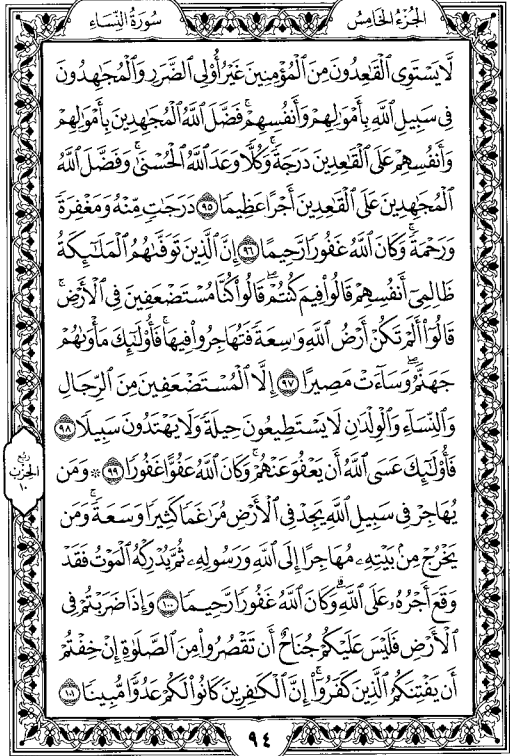 الجُزْءُ الخَامِسُ
سُورَةُ النِّسَاءِ
لَّا يَسْتَوِى الْقَٰعِدُونَ مِنَ الْمُؤْمِنِينَ غَيْرُ أُوْلِى الضَّرَرِ وَالْمُجَٰهِدُونَ
فِى سَبِيلِ اللَّهِ بِأَمْوَٰلِهِمْ وَأَنفُسِهِمْ ۚ فَضَّلَ اللَّهُ الْمُجَٰهِدِينَ بِأَمْوَٰلِهِمْ
وَأَنفُسِهِمْ عَلَى الْقَٰعِدِينَ دَرَجَةً ۚ وَكُلًّا وَعَدَ اللَّهُ الْحُسْنَىٰ ۚ وَفَضَّلَ اللَّهُ
الْمُجَٰهِدِينَ عَلَى الْقَٰعِدِينَ أَجْرًا عَظِيمًا ۝٩٥ دَرَجَٰتٍ مِّنْهُ وَمَغْفِرَةً
وَرَحْمَةً ۚ وَكَانَ اللَّهُ غَفُورًا رَّحِيمًا ۝٩٦ إِنَّ الَّذِينَ تَوَفَّىٰهُمُ الْمَلَٰٓئِكَةُ
ظَالِمِىٓ أَنفُسِهِمْ قَالُوا۟ فِيمَ كُنتُمْ ۖ قَالُوا۟ كُنَّا مُسْتَضْعَفِينَ فِى الْأَرْضِ ۚ
قَالُوٓا۟ أَلَمْ تَكُنْ أَرْضُ اللَّهِ وَٰسِعَةً فَتُهَاجِرُوا۟ فِيهَا ۚ فَأُو۟لَٰٓئِكَ مَأْوَىٰهُمْ
جَهَنَّمُ ۖ وَسَآءَتْ مَصِيرًا ۝٩٧ إِلَّا الْمُسْتَضْعَفِينَ مِنَ الرِّجَالِ
وَالنِّسَآءِ وَالْوِلْدَٰنِ لَا يَسْتَطِيعُونَ حِيلَةً وَلَا يَهْتَدُونَ سَبِيلًا ۝٩٨
فَأُو۟لَٰٓئِكَ عَسَى اللَّهُ أَن يَعْفُوَ عَنْهُمْ ۚ وَكَانَ اللَّهُ عَفُوًّا غَفُورًا ۝٩٩ * وَمَن
يُهَاجِرْ فِى سَبِيلِ اللَّهِ يَجِدْ فِى الْأَرْضِ مُرَٰغَمًا كَثِيرًا وَسَعَةً ۚ وَمَن
يَخْرُجْ مِنۢ بَيْتِهِۦ مُهَاجِرًا إِلَى اللَّهِ وَرَسُولِهِۦ ثُمَّ يُدْرِكْهُ الْمَوْتُ فَقَدْ
وَقَعَ أَجْرُهُۥ عَلَى اللَّهِ ۗ وَكَانَ اللَّهُ غَفُورًا رَّحِيمًا ۝١٠٠ وَإِذَا ضَرَبْتُمْ فِى
الْأَرْضِ فَلَيْسَ عَلَيْكُمْ جُنَاحٌ أَن تَقْصُرُوا۟ مِنَ الصَّلَوٰةِ إِنْ خِفْتُمْ
أَن يَفْتِنَكُمُ الَّذِينَ كَفَرُوٓا۟ ۚ إِنَّ الْكَٰفِرِينَ كَانُوا۟ لَكُمْ عَدُوًّا مُّبِينًا ۝١٠١
ربع
الحزب
١٠
٩٤